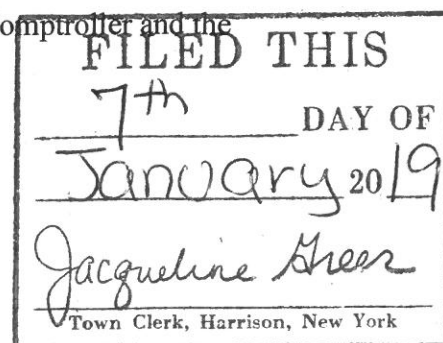 omptroller and the
FILED THIS
7th DAY OF
January 2019
Jacqueline Greer
Town Clerk, Harrison, New York